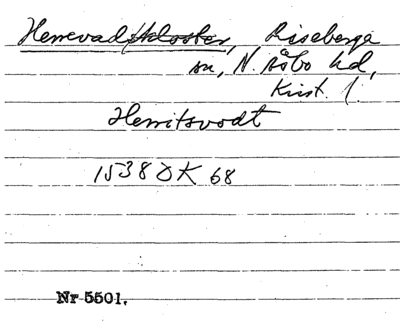 Herrevadskloster, Riseberga
sn, N. Åsbo hd,
Krist. l.
Herritsvodt
1538 DK 68
Nr 5501.